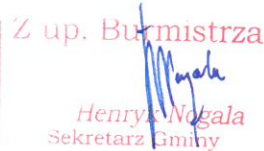 Z up. Burmistrza
Nogala
Henryk Nogala
Sekretarz Gminy